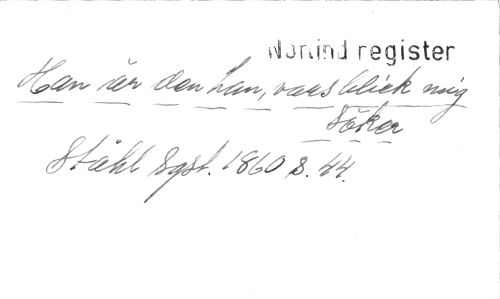 Norlind register
Han är den han, vars blick mig
söker
Ståhl Sgst. 1860 s. 44.